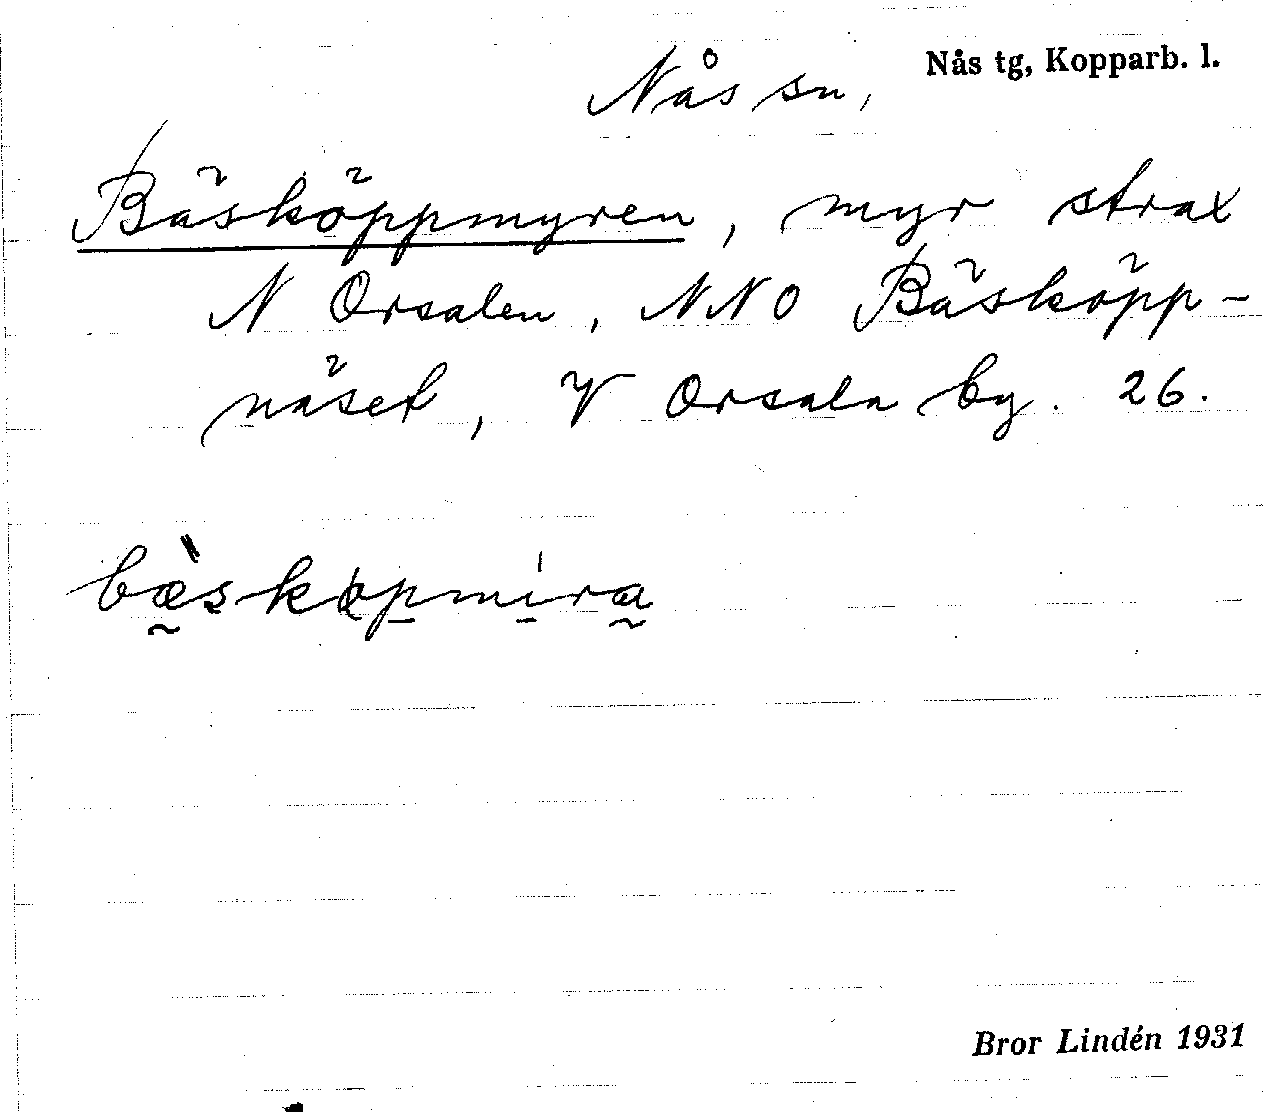 Nås tg, Kopparb. l.
Nås sn,
Bäsköppmyren, myr strax
N Orsalen, NNO Bäsköpp-
näset, V Orsala by. 26.
Bror Lindén 1931